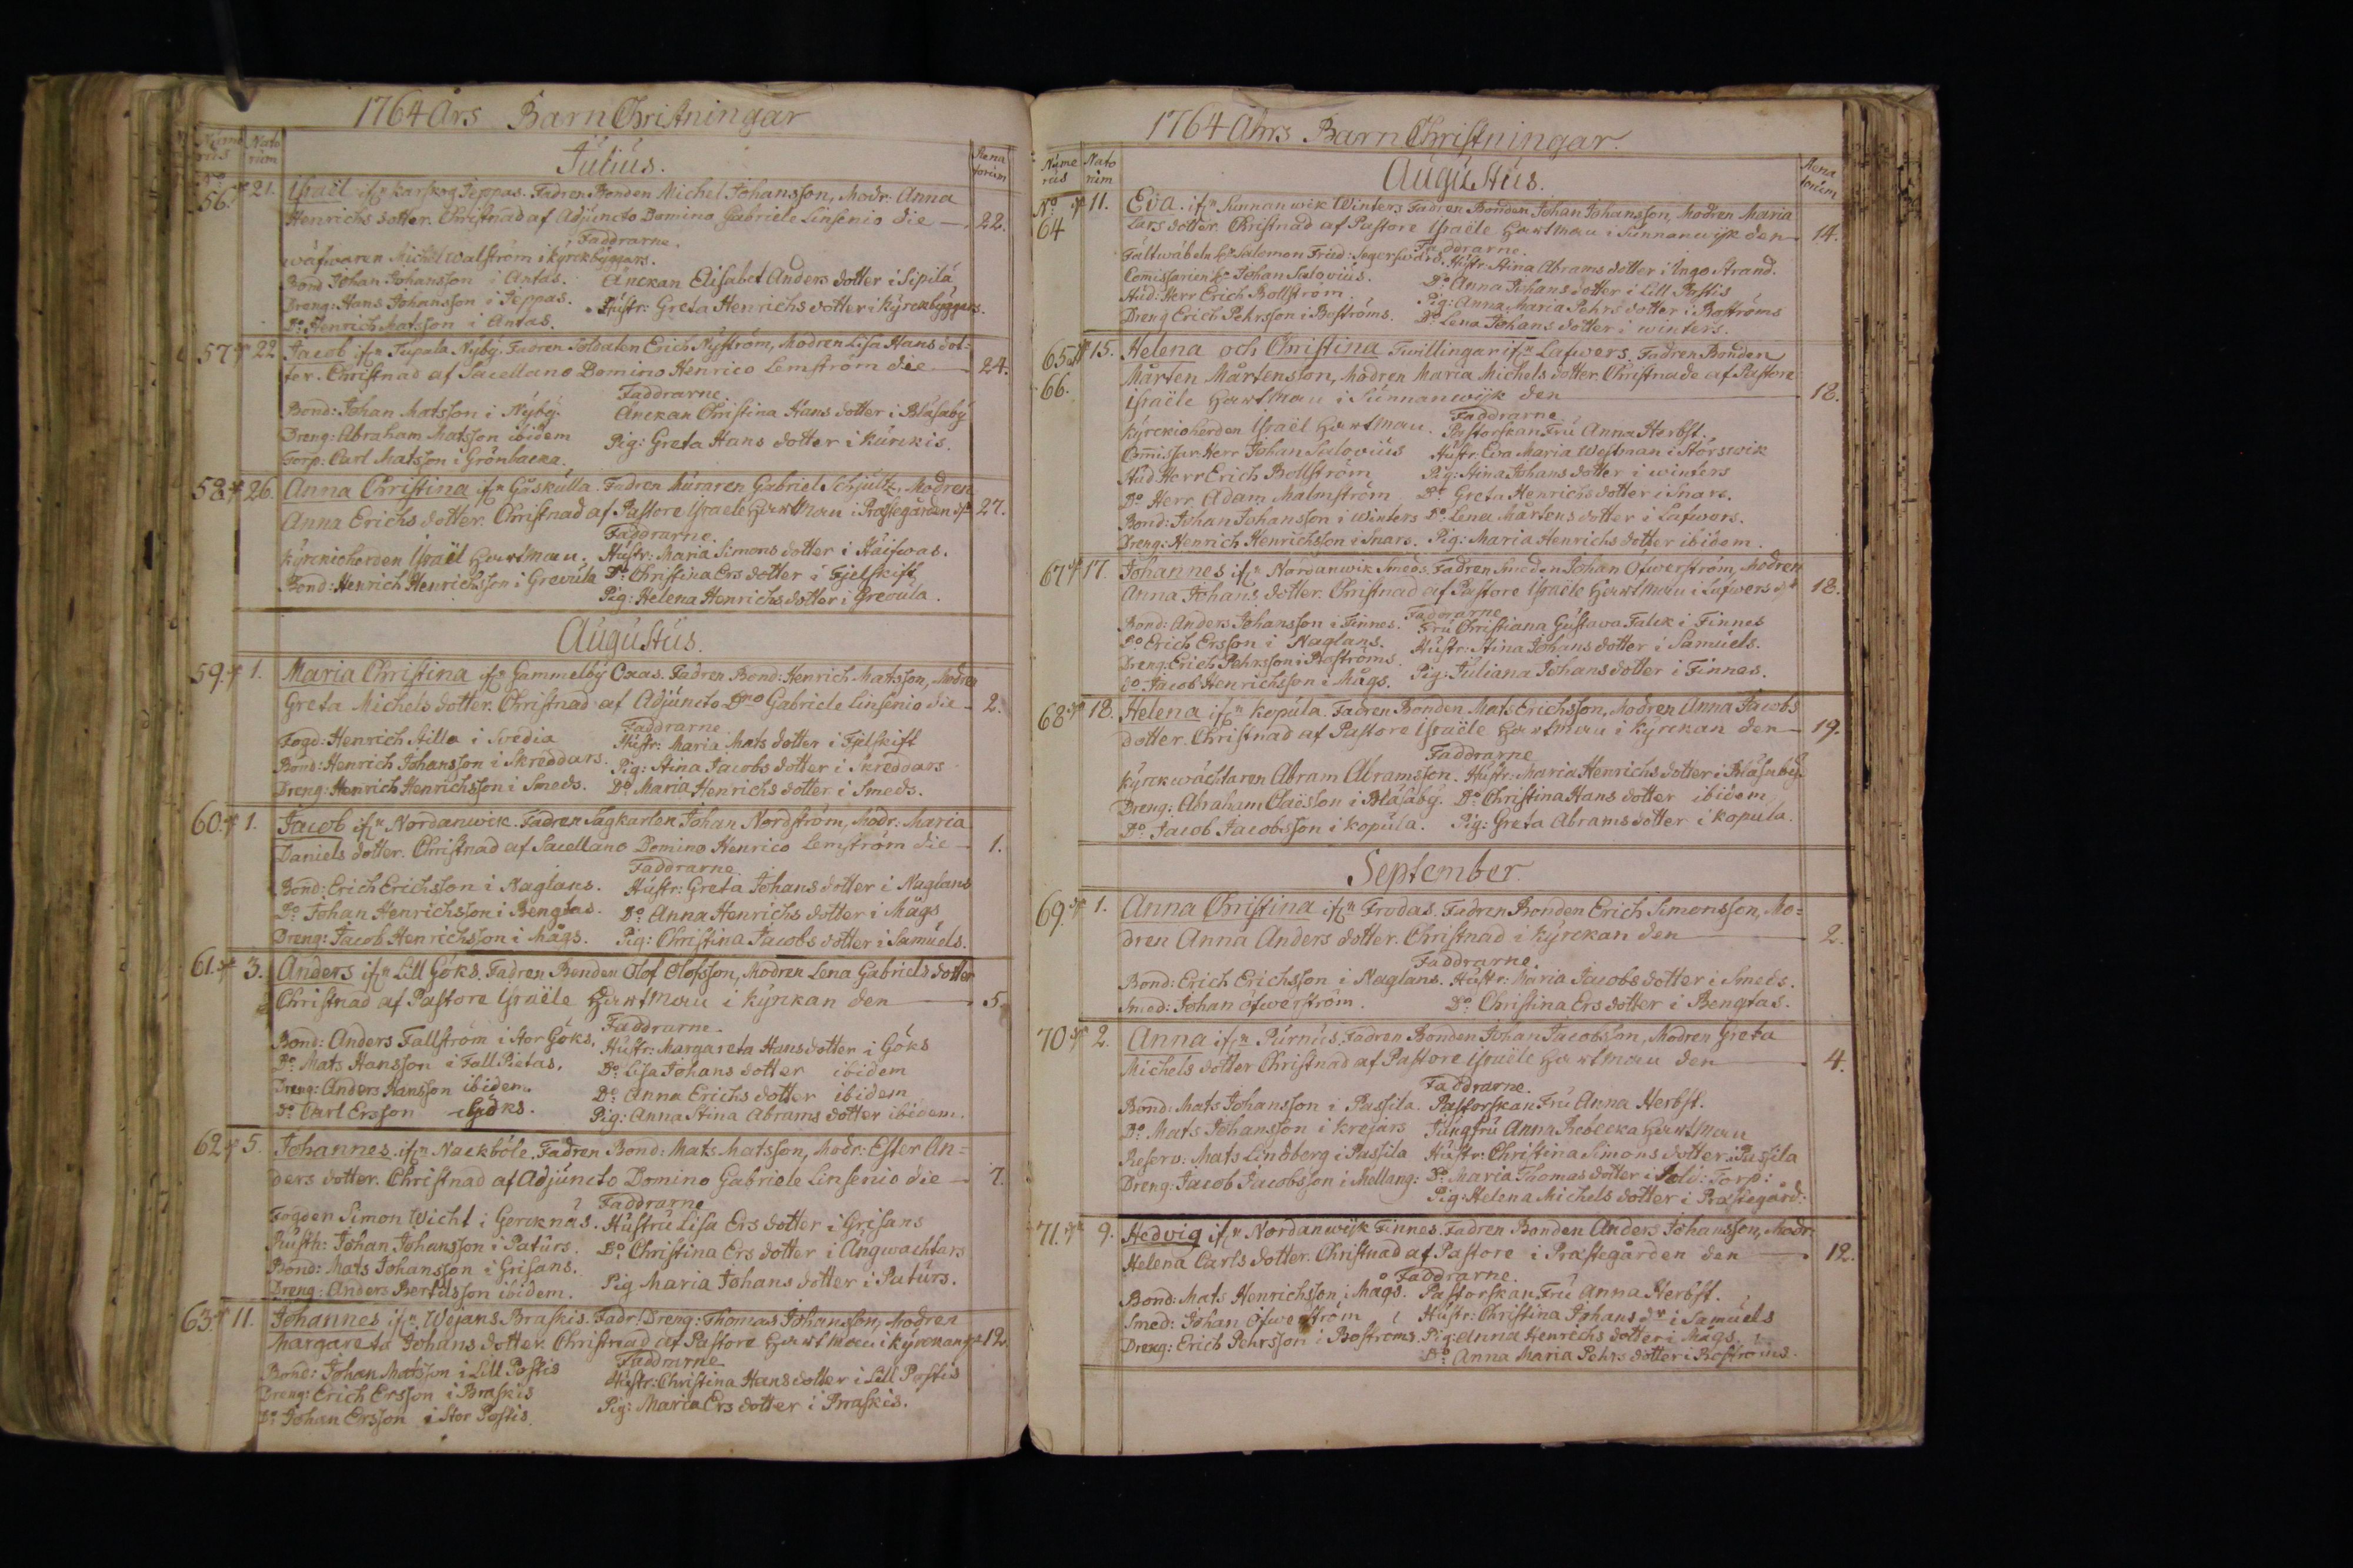 1764 Års Barn Christningar
Nume rus Nato rum Rena torum
Julius.
No 56. 21. Israël ifrn Karskog Jeppas. Fadren Bonden Michel Johansson, Modr: Anna
Henrichs dotter. Christnad af Adjuncto Domino Gabriele Linsenio die 22.
Faddrarne.
wäfwaren Michel Walström i Kyrckbyggars.
Bond Johan Johansson i Antas. Änckan Elisabet Anders dotter i Sipilä
Dreng: Hans Johansson i Jeppas. Hustr: Greta Henrichs dotter i Kyrckbyggars.
Do Henrich Matsson i Antas.
57 22 Jacob ifrn Tupala Nyby. Fadren Soldaten Erich Nyström, Modren Lisa Hans dot-
ter. Christnad af Sacellano Domino Henrico Lemström die 24.
Faddrarne.
Bond: Johan Matsson i Nyby. Anckan Christina Hans dotter i Blåsaby
Dreng: Abraham Matsson ibidem Pig: Greta Hans dotter i Kurckis.
Torp: Carl Matsson i Grönbacka.
58 26. Anna Christina ifrn Gåskulla. Fadren Muraren Gabriel Schjultz, Modren
Anna Erichs dotter. Christnad af Pastore Israele Hartman i Prästegården 27.
Faddrarne.
Kyrckioherden Israël Hartman. Hustr: Maria Simons dotter i Häifwas.
Bond: Henrich Henrichsson i Grevula Do Christina Ers dotter i Fjelskift
Pig: Helena Henrichs dotter i Grevula.
Augustus.
59. 1. Maria Christina ifrn Gammelby Oxas. Fadren Bond: Henrich Matsson, Modren
Greta Michels dotter. Christnad af Adjuncto Dno Gabriele Linsenio die 2.
Faddrarne
Fogd: Henrich Stilla i Svedia Hustr: Maria Mats dotter i Fjelskift
Bond: Henrich Johansson i Skreddars. Pig: Stina Jacobs dotter i Skreddars
Dreng: Henrich Henrichsson i Smeds. Do Maria Henrichs dotter i Smeds.
60. 1. Jacob ifrn Nordanwik. Fadren Sagkarlen Johan Nordström, Modr: Maria
Daniels dotter. Christnad af Sacellano Domino Henrico Lemström die 1.
Faddrarne.
Bond: Erich Erichsson i Naglans. Hustr: Greta Johans dotter i Naglans
Do Johan Henrichsson i Bengtas. Do Anna Henrichs dotter i Mågs
Dreng: Jacob Henrichsson i Mågs. Pig: Christina Jacobs dotter i Samuels.
61. 3. Anders ifrn Lill Göks. Fadren Bonden Olof Olofsson, Modren Lena Gabriels dotter
Christnad af Pastore Israële Hartman i Kyrckan den 5
Faddrarne.
Bond: Anders Fallström i Stor Göks. Hustr: Margareta Hans dotter i Göks
Do Mats Hansson i Fall Pietas. Do Lisa Johans dotter ibidem
Dreng: Anders Hansson ibidem. Do Anna Erichs dotter ibidem
Do Carl Ersson i Göks. Pig: Anna Stina Abrams dotter ibidem.
62 5. Johannes ifrn Nackböle. Fadren Bond: Mats Matsson, Modr: Ester An=
ders dotter. Christnad af Adjuncto Domino Gabriele Linsenio die 7.
Faddrarne
Fogden Simon Wicht i Gercknäs. Hustru Lisa Ers dotter i Grisans
Rusth: Johan Johansson i Paturs. Do Christina Ers dotter i Ängwachtars
Bond: Mats Johansson i Grisans.
Dreng: Anders Bertilsson ibidem. Pig Maria Johans dotter i Paturs.
63. 11. Johannes ifrn Wejans Braskis. Fadr: Dreng: Thomas Johansson, Modren
Margareta Johans dotter. Christnad af Pastore Hartman i Kyrckan 12.
Faddrarne
Bond: Johan Matsson i Lill Postis Hustr: Christina Hans dotter i Lill Postis
Dreng: Erich Ersson i Braskis Pig: Maria Ers dotter i Braskis.
Do Johan Ersson i Stor Postis.
1764 Ahrs Barn Christningar.
Nume rus Nato rum Rena torum
Augustus.
No 64 11. Eva. ifrn Sunnanwik Winters Fadren Bonden Johan Johansson, Modren Maria
Lars dotter. Christnad af Pastore Israële Hartman i Sunnanwijk den 14.
Faddrarne.
Fältwäbeln Hr Salomon Fried: Segersward. Hustr: Stina Abrams dotter i Ingo Strand.
Comissarien Hr Johan Salovius. Do Anna Johans dotter i Lill Postis
Hud: Herr Erich Bollström. Pig: Anna Maria Pehrs dotter i Boströms
Dreng Erich Pehrsson i Boströms. Do Lena Johans dotter i winters.
65 66. 15. Helena och Christina Twillingar ifrn Lafwers. Fadren Bonden
Mårten Mårtensson, Modren Maria Michels dotter. Christnade af Pastore
Israële Hartman i Sunnanwijk den 18.
Faddrarne
Kyrckioherden Israël Hartman. Pastorskan Fru Anna Herbst.
Comissar Herr Johan Salovius Hustr: Eva Maria Westman i Storswik
Hud Herr Erich Bollström Pig: Stina Johans dotter i winters
Do Herr Adam Malmström. Do Greta Henrichs dotter i Snare.
Bond: Johan Johansson i winters Do Lena Mårtens dotter i Lafwers.
Dreng: Henrich Henrichsson i Snare. Pig: Maria Henrichs dotter ibidem.
67 17. Johannes ifrn Nordanwik Smeds. Fadren Smeden Johan Öfwerström, Modren
Anna Johans dotter. Christnad af Pastore Israële Hartman i Lafwers 18.
Faddrarne
Bond: Anders Johansson i Finnes. Fru Christiana Gustava Falck i Finnes
Do Erich Ersson i Naglans. Hustr: Stina Johans dotter i Samuels.
Dreng: Erich Pehrsson i Boströms. Pig: Juliana Johans dotter i Finnes.
Do Jacob Henrichsson i Mågs.
68 18. Helena ifrn Kopula. Fadren Bonden Mats Erichsson, Modren Anna Jacobs
dotter. Christnad af Pastore Israële Hartman i Kyrckan den 19.
Faddrarne
Kyrckwächtaren Abram Abramsson. Hustr: Maria Henrichs dotter i Blåsaby
Dreng: Abraham Claësson i Blåsaby. Do Christina Hans dotter ibidem
Do Jacob Jacobsson i Kopula. Pig: Greta Abrams dotter i Kopula.
September.
69. 1. Anna Christina ifrn Frodas. Fadren Bonden Erich Simonsson, Mo=
dren Anna Anders dotter. Christnad i Kyrckan den 2.
Faddrarne.
Bond: Erich Erichsson i Naglans. Hustr: Maria Jacobs dotter i Smeds.
Smed: Johan öfwerström. Do Christina Ers dotter i Bengtas.
70 2. Anna ifrn Purnus. Fadren Bonden Johan Jacobsson, Modren Greta
Michels dotter Christnad af Pastore Israële Hartman den 4.
Faddrarne.
Bond: Mats Johansson i Passila. Pastorskan Fru Anna Herbst.
Do Mats Johansson i Krejars Jungfru Anna Rebecka Hartman
Reserv: Mats Lindberg i Passila Hustr: Christina Simons dotter i Passila
Dreng: Jacob Jacobsson i Mellang: Do Maria Thomas dotter i Sold: Torp:
Pig: Helena Michels dotter i Prästegård:
71. 9. Hedvig ifrn Nordanwijk Finnes. Fadren Bonden Anders Johansson, Modr:
Helena Carls dotter. Christnad af Pastore i Prästegården den 12.
Faddrarne.
Bond: Mats Henrichsson i Mågs. Pastorskan Fru Anna Herbst.
Smed: Johan Öfwerström Hustr: Christina Johans dr i Samuels
Dreng: Erich Pehrsson i Boströms. Pig: Anna Henrichs dotter i Mågs.
Do Anna Maria Pehrs dotter i Boströms.